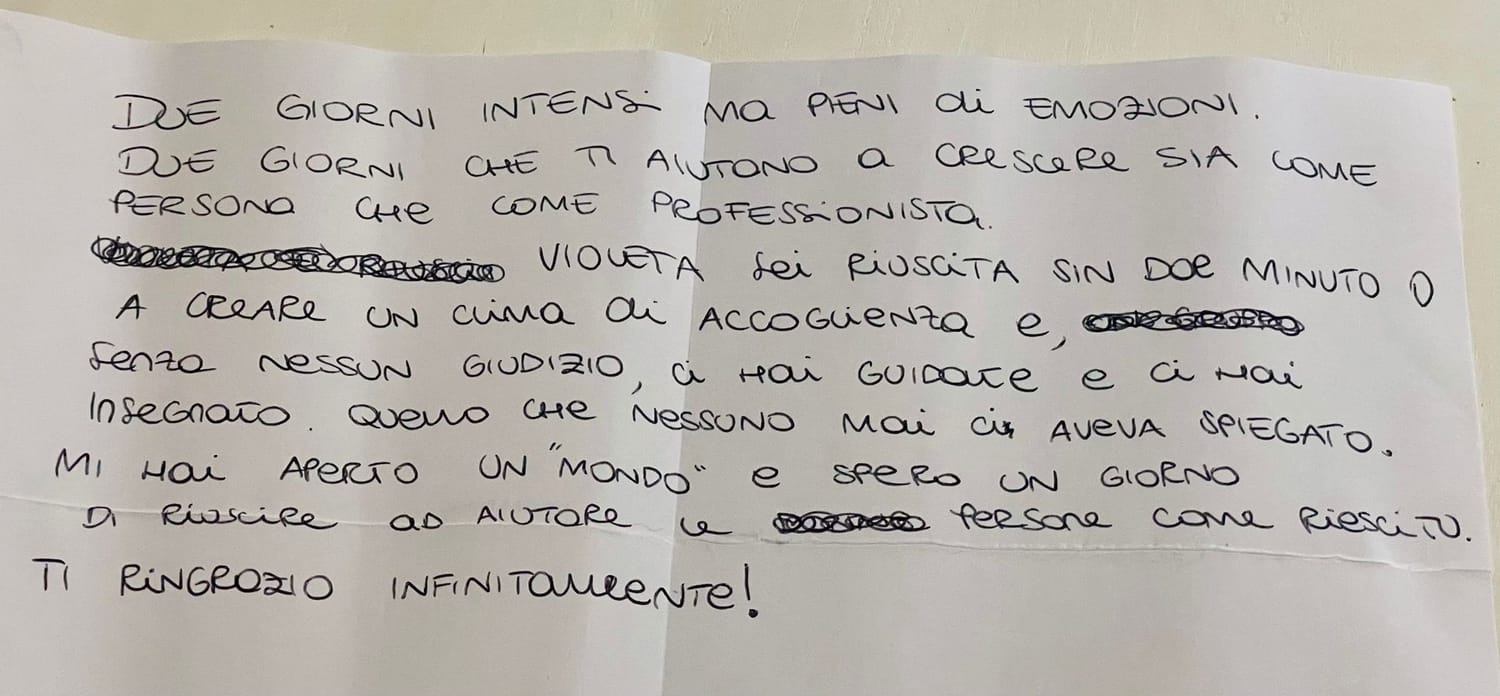 DUE GIORNI INTENSi Ma PIENI di EMOZIONI.
DUE GIORNI CHE TI AIUTANO a CResceRe SIA COME
PERSONA CHe COME PROFESSiONISTa.
VIOLETA sei RIUSCiTA SIN DAL MINUTO 0
A CReARe UN CLima di ACCOGLIeNZa e,
senza NeSSUN GIUDIZIO, ci Hai GUIDaTe e ci Hai
InseGNaTo. QUeLLO CHe NeSSUNO Mai ci AVeVA SPIEGATO.
MI Hai APeRTO UN "MONDO" e SPeRO UN GIORNO
Di RiUSCIRe aD AIUTARE Le PeRSONe COMe RIeSCi TU.
TI RiNGRAZIO INFINITaMeNTe!